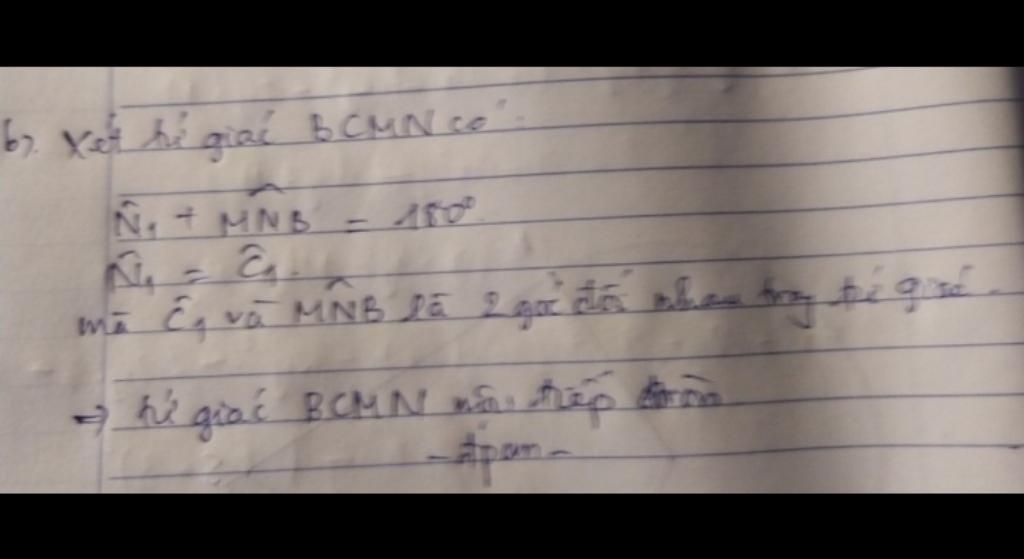 b). Xét tứ giác BCMN có:
N̂₁ + MN̂B = 180°
N̂₁ = Ĉ₁.
mà Ĉ₁ và MN̂B là 2 góc đối nhau trong tứ giác.
→ tứ giác BCMN nội tiếp
- đpcm -